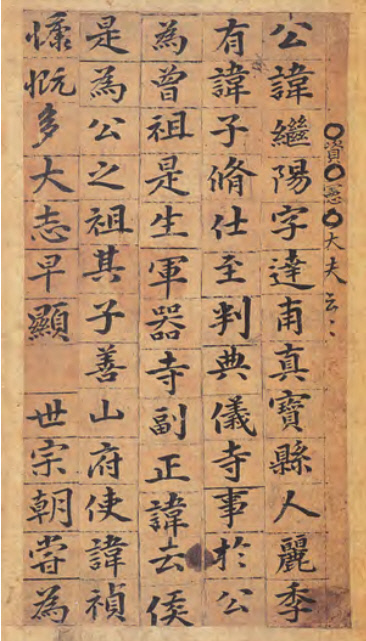 〇資〇憲〇大夫云〻
公諱繼陽字達甫真寶縣人麗季
有諱子脩仕至判典儀寺事於公
為曾祖是生軍器寺副正諱云侯
是為公之祖其子善山府使諱禎
慷慨多大志早顯 世宗朝嘗為